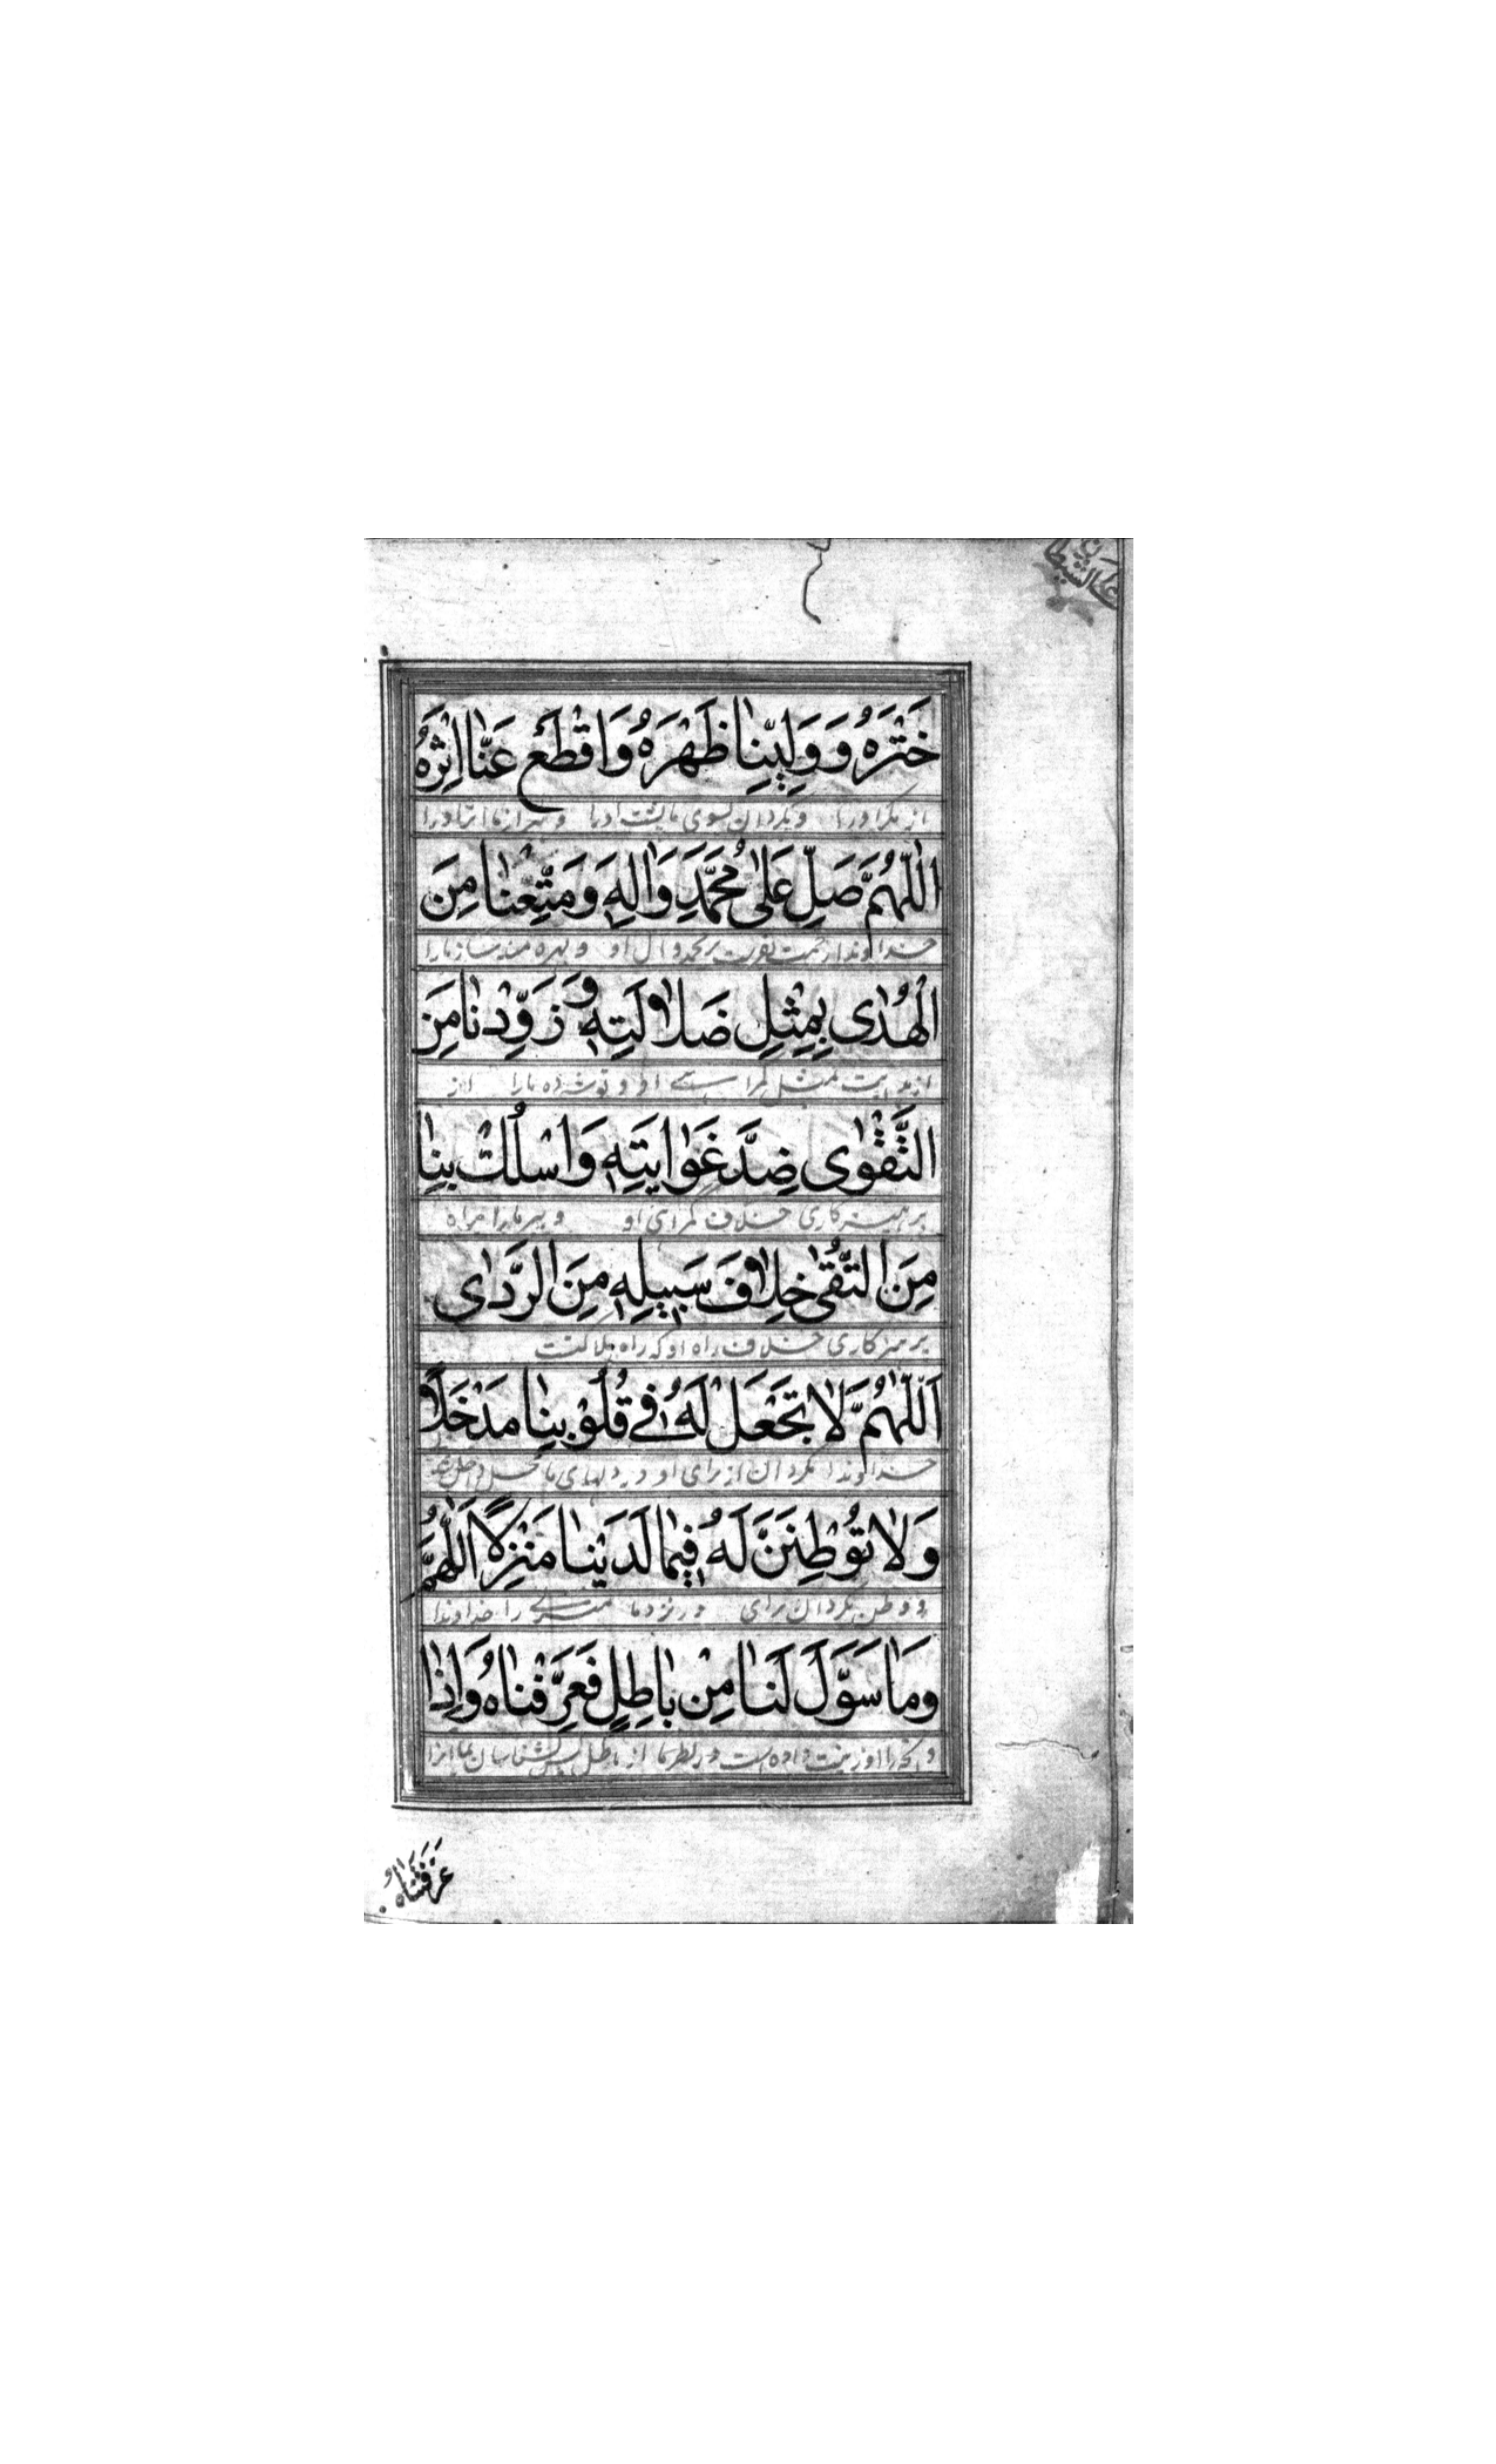 على الشيطان
خَتْرَهُ وَوَلِّنِا ظَهْرَهُ وَاقْطَعْ عَنّٰا اِثْرَهُ
از مکر او را و بگردان بسوی ما پشت او را و ببر از ما اثر او را
اَللّٰهُمَّ صَلِّ عَلىٰ مُحَمَّدٍ وَاٰلِهِ وَمَتِّعْنٰا مِنَ
خداوندا رحمت بفرست بر محمد و آل او و بهره مند ساز ما را
الْهُدٰى بِمِثْلِ ضَلاٰلَتِهِ وَزَوِّدْنٰا مِنَ
از هدایت مثل گمراهی او و توشه ده ما را از
التَّقْوٰى ضِدَّ غَوٰايَتِهِ وَاسْلُكْ بِنٰا
پرهیزکاری خلاف گمراهی او و ببر ما را براه
مِنَ التُّقىٰ خِلاٰفَ سَبِيلِهِ مِنَ الرَّدٰى
پرهیزکاری خلاف راه او که راه هلاکتست
اَللّٰهُمَّ لاٰ تَجْعَلْ لَهُ فِى قُلُوْبِنٰا مَدْخَلاً
خداوندا مگردان از برای او در دلهای ما محل داخل
وَلاٰ تُوْطِنَنَّ لَهُ فِيمٰا لَدَيْنٰا مَنْزِلاً اَللّٰهُمَّ
و وطن مگردان برای در نزد ما منزلی را خداوندا
وَمٰا سَوَّلَ لَنٰا مِنْ بٰاطِلٍ فَعَرِّفْنٰاهُ وَاِذٰا
و آنچه را او زینت داده است در نظر ما از باطل پس بشناسان بما آنرا
عَرَّفْتَنٰاهُ